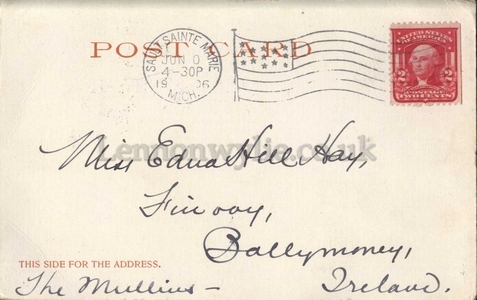 POST CARD
SAULT SAINTE MARIE
JUN 0
4-30P
19 06
MICH.
UNITED STATES
OF AMERICA
2 2
POSTAGE
TWO CENTS
Lennonwylie.co.uk
Miss Edna Hill Hay,
Finvoy,
Ballymoney,
THIS SIDE FOR THE ADDRESS.
The Mullins – Ireland.